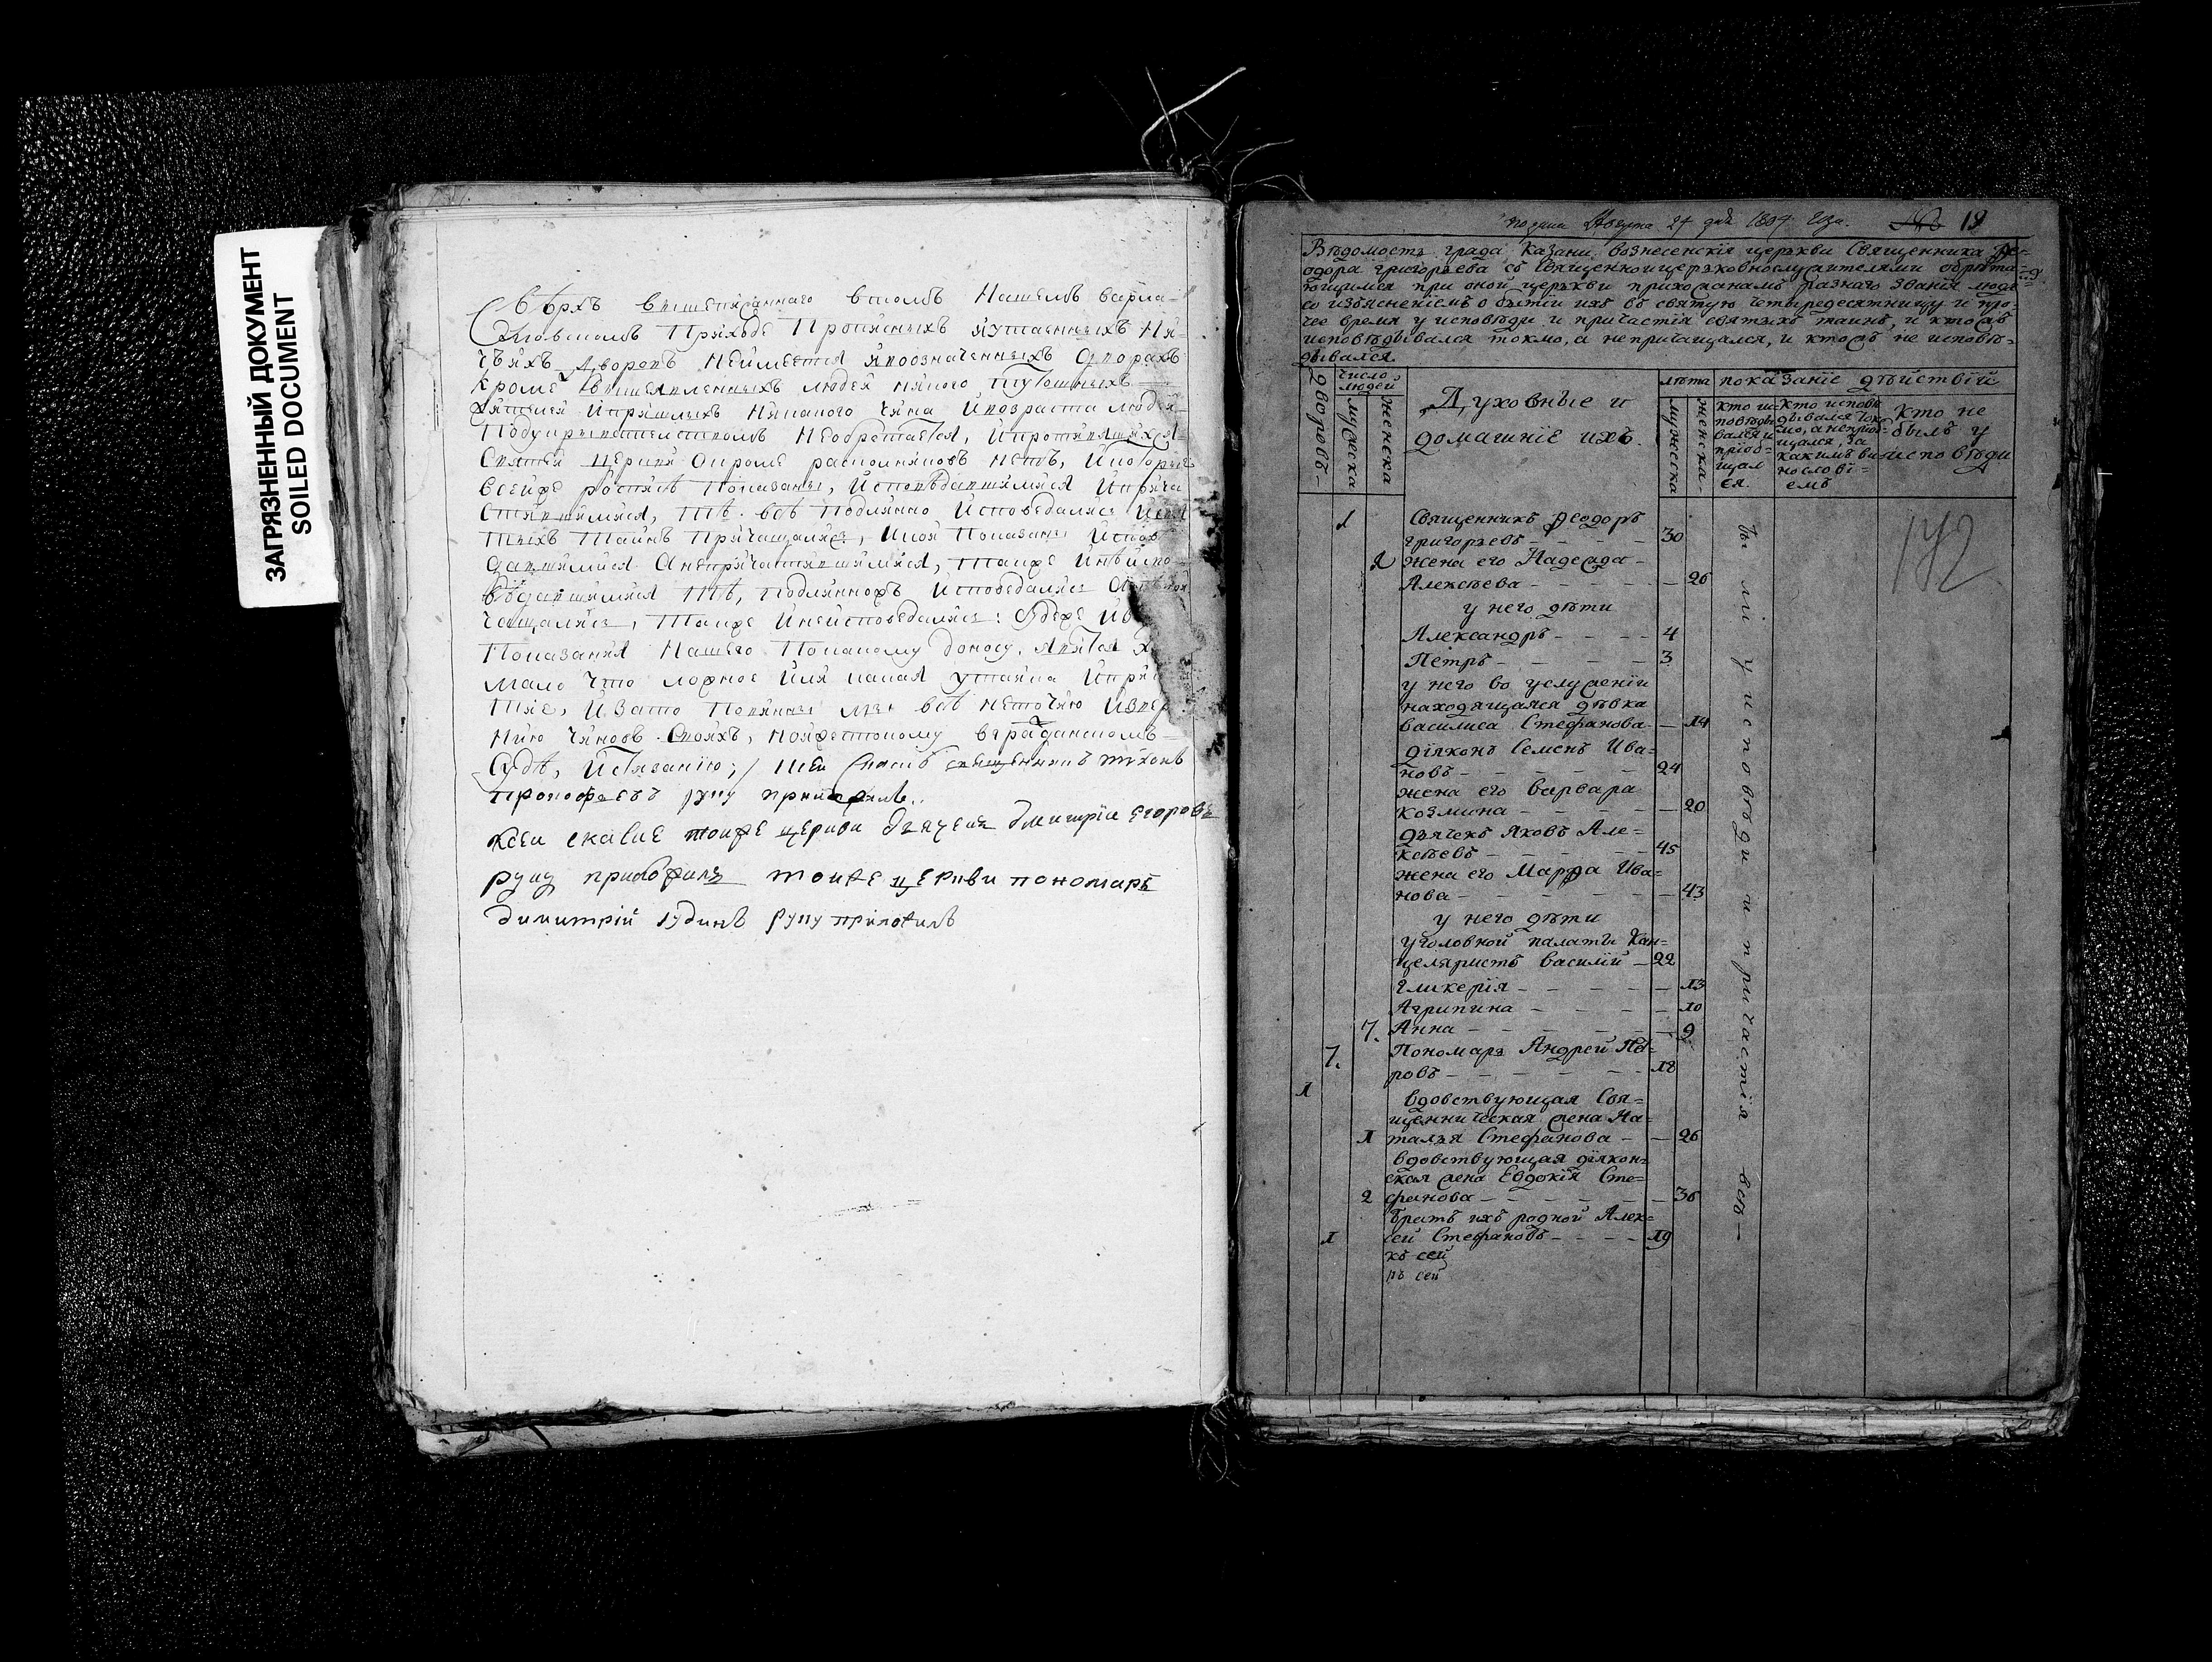 ЗАГРЯЗНЕННЫЙ ДОКУМЕНТ
SOILED DOCUMENT
Сверхъ вышеписаннаго втомъ Нашемъ варла
Приходе Прописныхъ иутаенныхъ Ни
чьихъ Дворовъ Неимеется ивоозначенныхъ дворахъ
Кроме вышеявленныхъ людей никого тутошныхъ
жителей ипришлыхъ никакого чина ивозраста людей
Необретается,
Святей церкви окроме раскольниковъ нетъ, икоторые
всейже росписѣ показаны, исповѣдавшимися иприча
стившимися, тѣ всѣ подлинно исповедались
тыхъ таинъ причащались, икои показаны испов
давшимися анепричастившимися, також инеиспо
вѣдавшимися тѣ, подлинножъ исповедались
чащались, також инеисповедались: аежели
показания нашего покакому доносу, явится х
мало что ложное или какая утайка ипри
тие, изато повинны мы всѣ неточию извер
нию чиновъ своихъ, нояжестокому вгражданскомъ
судѣ, истязанию; / Ксеи священникъ тихонъ
прокофьевъ руку приложилъ.
Ксеи скаске тоиже церкви дьячекъ дмитрiи егоровъ
руку приложилъ тоиже церкви пономарь
димитрiй юдинъ руку приложилъ
подано Августа 24 дня 1804 года. 18
Вѣдомость града Казани вознесенскiя церькви Священника Ѳе=
одора григорьева съ священноицерьковнослужителями обрѣта=
ющимся при оной церькви прихожанамъ разнаго званiя людей
со изъясненiемъ о бытiи ихъ въ святую четыредесятницу и про=
чее время у исповѣди и причастiя святыхъ таинъ, и ктожъ
исповѣдывался токмо, а непричащался, и ктожъ не исповѣ=
дывался.
дворовъ
число людей
мужеска
женска
Духовные и
домашнiе ихъ.
лѣта
мужеска
женска
показанiе дѣйствiй
кто ис=
повѣды
вался и
прiоб=
щал
ся.
Кто исповѣ
дывался ток
мо, а непрiоб=
щался, за
какимъ ви
нословi=
емъ
кто не
былъ у
исповѣди
1 Священникъ Ѳеодоръ
григорьевъ 30
2 жена его Надежда
Алексѣева 26
у него дѣти
Александръ 4
Петръ 3
у него во услуженiи
находящаяся дѣвка
василиса Стефанова 14
дiяконъ Семенъ Ива=
новъ 24
жена его варвара
козмина 20
дьячекъ Яковъ Але=
ксѣевъ 45
жена его Марѳа Ива=
нова 43
у него дѣти
уголовной палаты Кан=
целяристъ василiй 22
гликерiя 13
Агрипина 10
7. Анна 9
7. Пономарь Андрей Пе=
ровъ 18
1 вдовствующая Свя=
щенническая жена На=
1 талья Стефанова 26
вдовствующая дiякон=
ская жена Евдокiя Сте=
2 фанова 36
братъ ихъ родной Алек=
1 сей Стефановъ 19
къ сей
къ сей
бы ли у исповѣди и причастiя всѣ
192